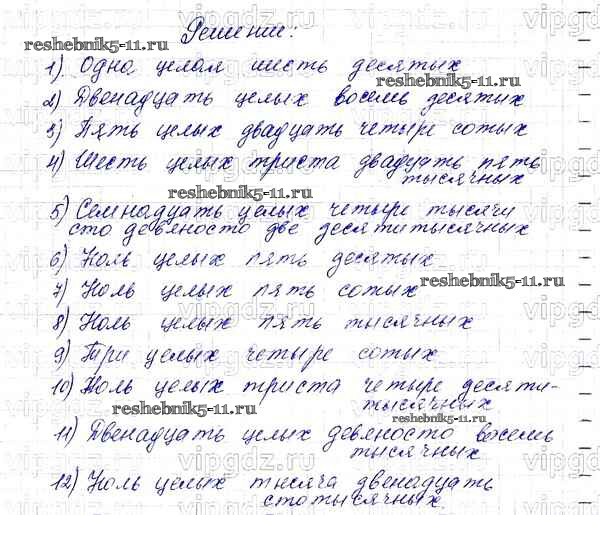 Решение:
reshebnik5-11.ru
1) Одна целая шесть десятых
reshebnik5-11.ru
2) Двенадцать целых восемь десятых
3) Пять целых двадцать четыре сотых
4) Шесть целых триста двадцать пять
тысячных
reshebnik5-11.ru
5) Семнадцать целых четыре тысячи
сто девяносто две десятитысячных
6) Ноль целых пять десятых
reshebnik5-11.ru
7) Ноль целых пять сотых
8) Ноль целых пять тысячных
9) Три целых четыре сотых
10) Ноль целых триста четыре десяти-
тысячных
reshebnik5-11.ru
reshebnik5-11.ru
11) Двенадцать целых девяносто восемь
тысячных
12) Ноль целых тысяча двенадцать
reshebnik5-11.ru
стотысячных
vipgdz.ru